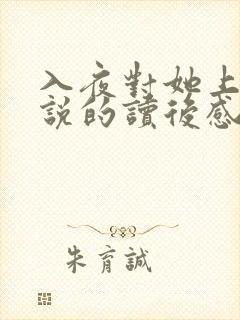 入夜對她上
說的讀後感
朱育誠